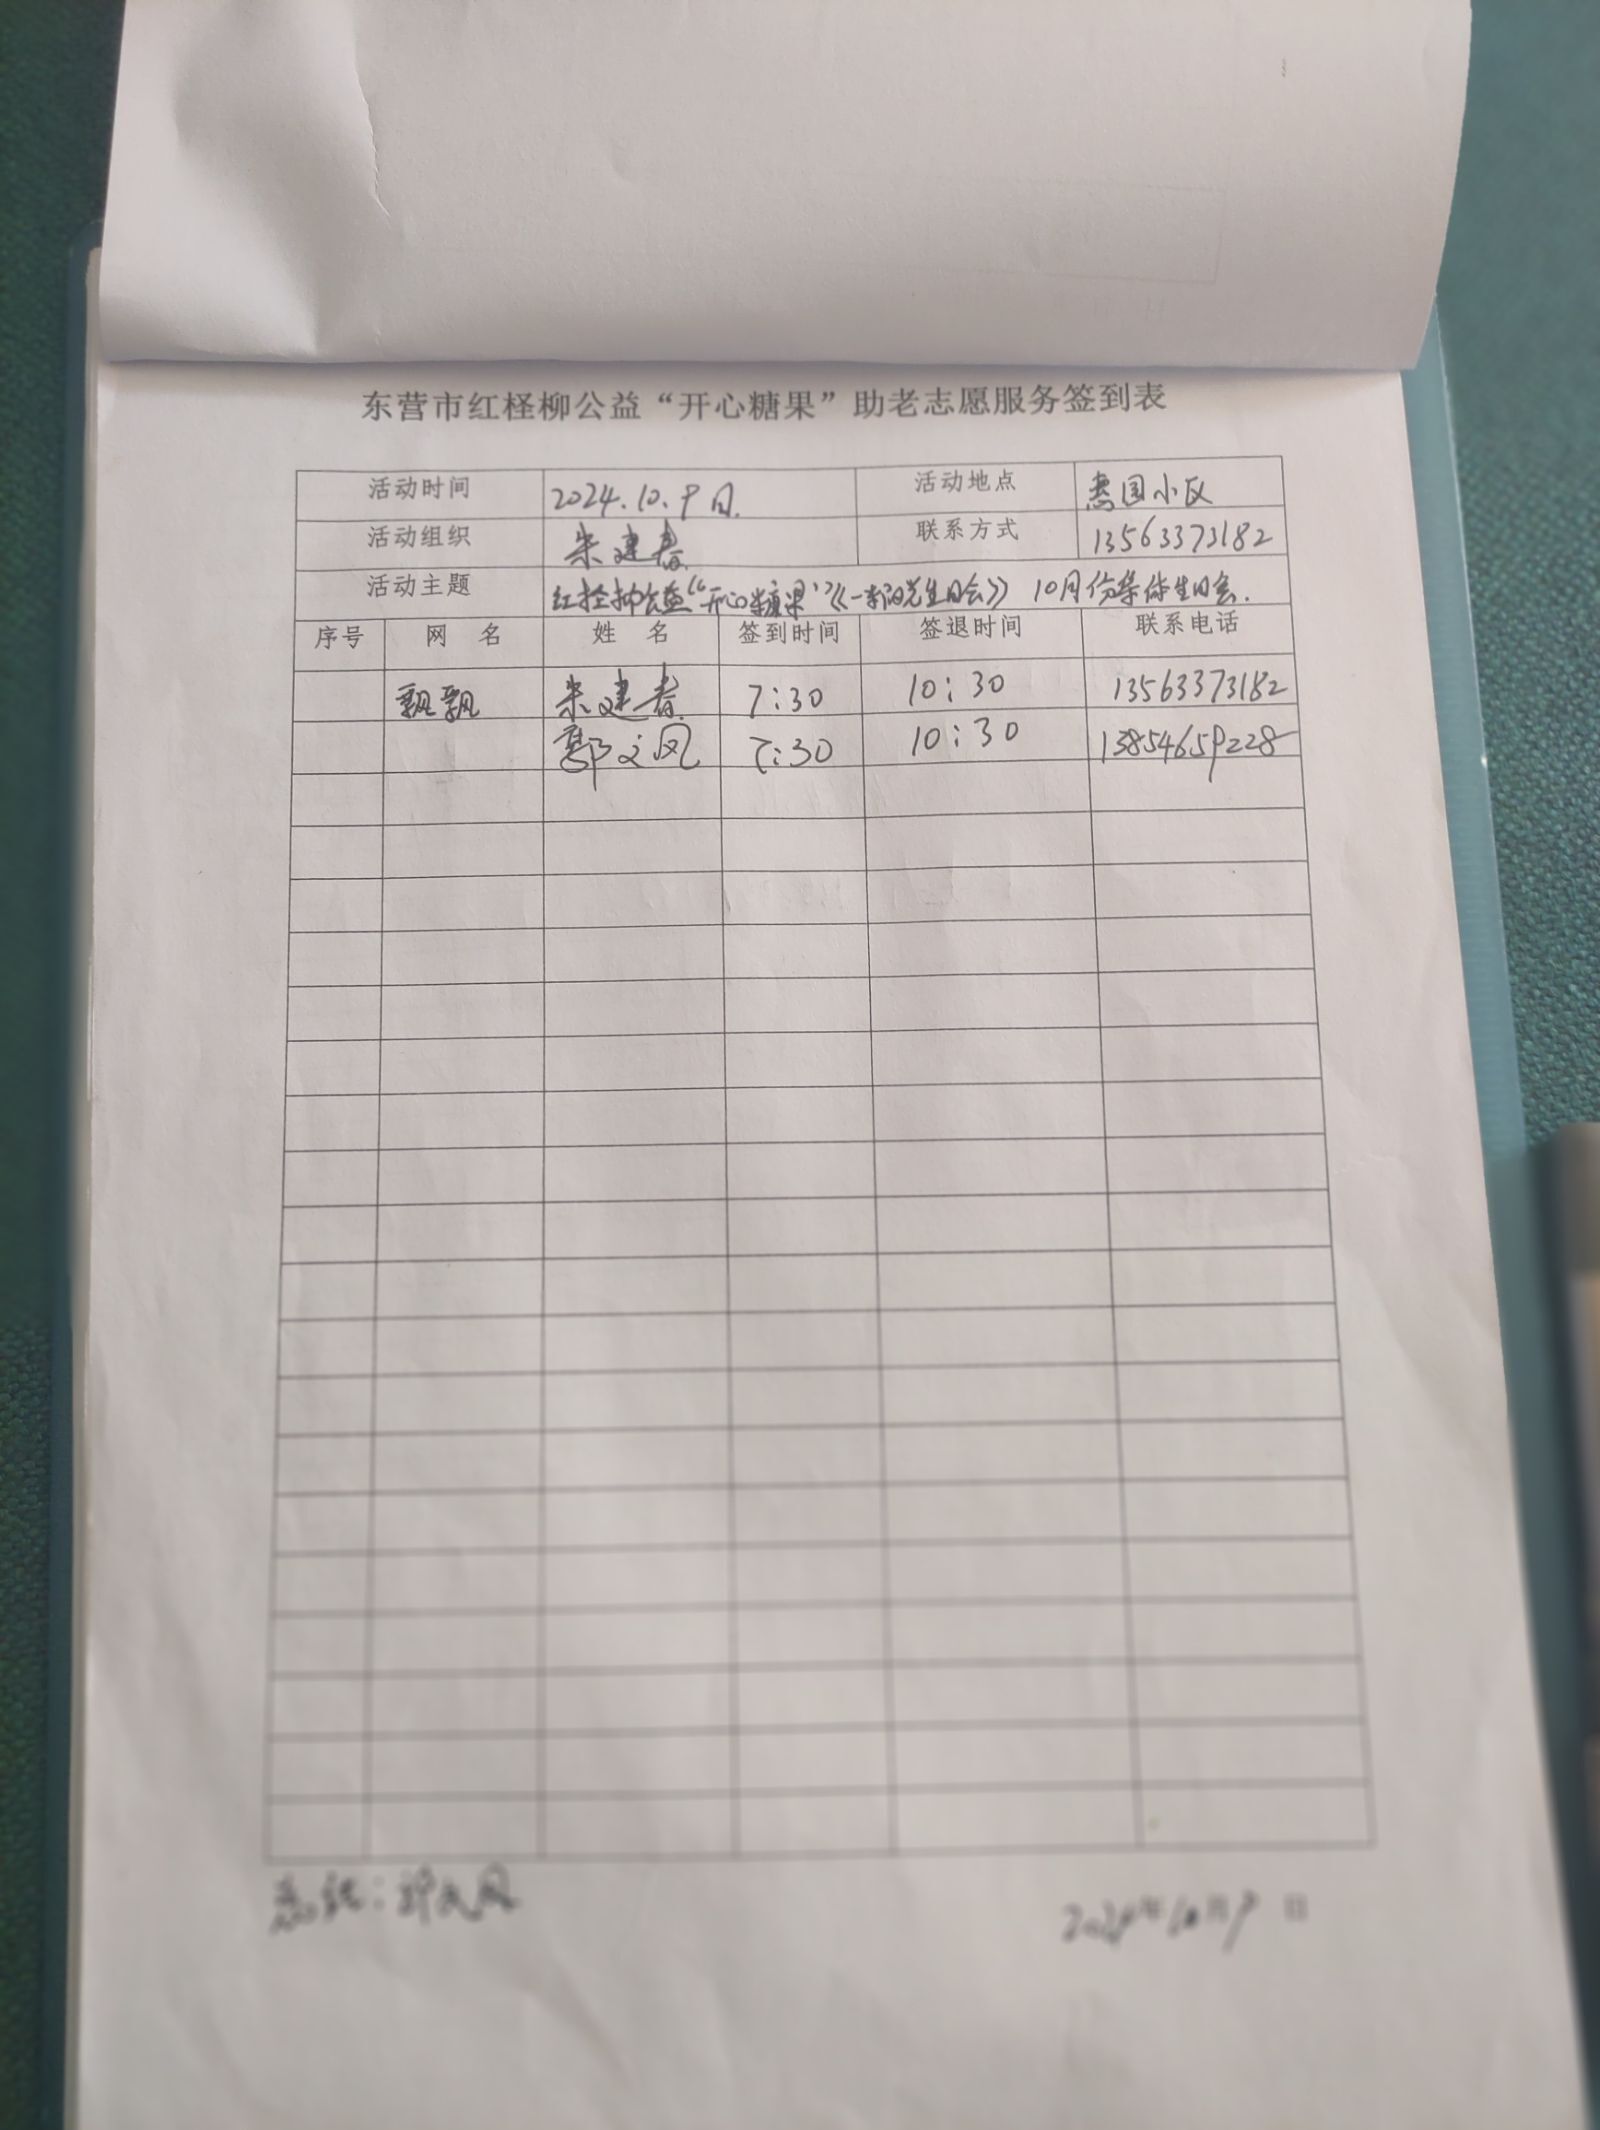 东营市红柽柳公益“开心糖果”助老志愿服务签到表
活动时间 2024.10.9日. 活动地点 惠园小区
活动组织 朱建春 联系方式 13563373182
活动主题 红柽柳公益“开心糖果”《一缕阳光生日会》 10月份集体生日会.
序号 网 名 姓 名 签到时间 签退时间 联系电话
飘飘 朱建春 7:30 10:30 13563373182
郭文凤 7:30 10:30 13854659228
总结:郭文凤 2024年10月9 日